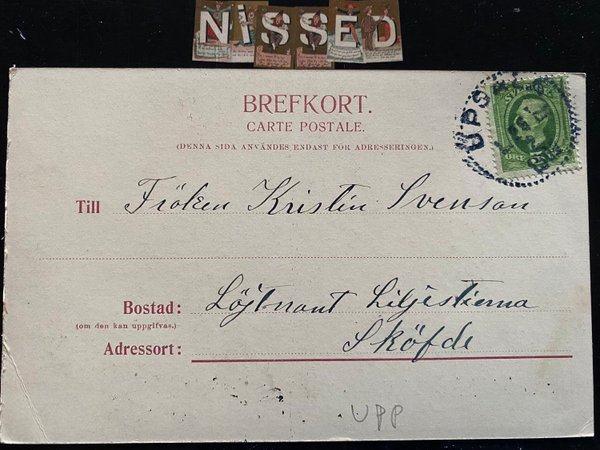 NiSSED
BREFKORT.
CARTE POSTALE.
(DENNA SIDA ANVÄNDES ENDAST FÖR ADRESSERINGEN.)
UPSALA
ÖRE
Till Fröken Kristin Svenson
Bostad: Löjtnant Liljestierna
(om den kan uppgifvas.)
Adressort: Sköfde
UPP